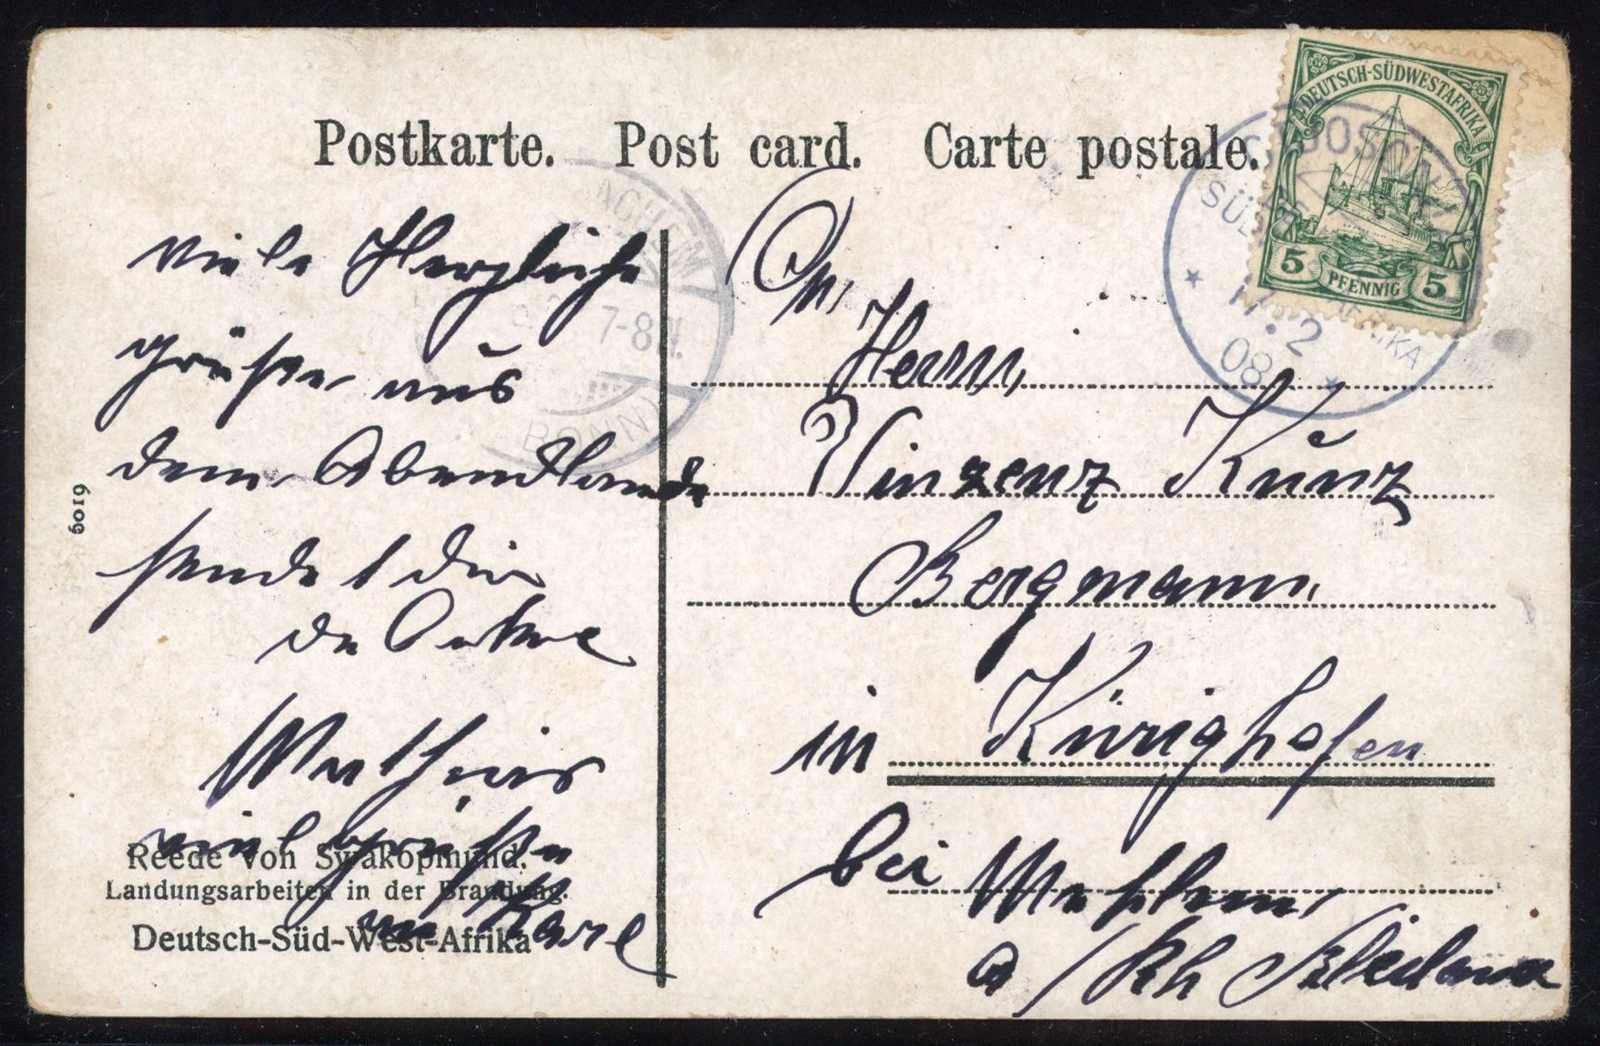 Postkarte. Post card. Carte postale.
DEUTSCH-SÜDWESTAFRIKA
5 PFENNIG 5
17.2
08
7-8N.
(BONN)
viele Herzliche
grüße aus
dem Abendlande
sende ich dir
Mathias
viel grüße
Karl
6019
Reede von Swakopmund.
Landungsarbeiten in der Brandung.
Deutsch-Süd-West-Afrika
An
Herrn
Vinzenz Kunz
Bergmann
in Züzighofen
bei Mehlem
a/Rh